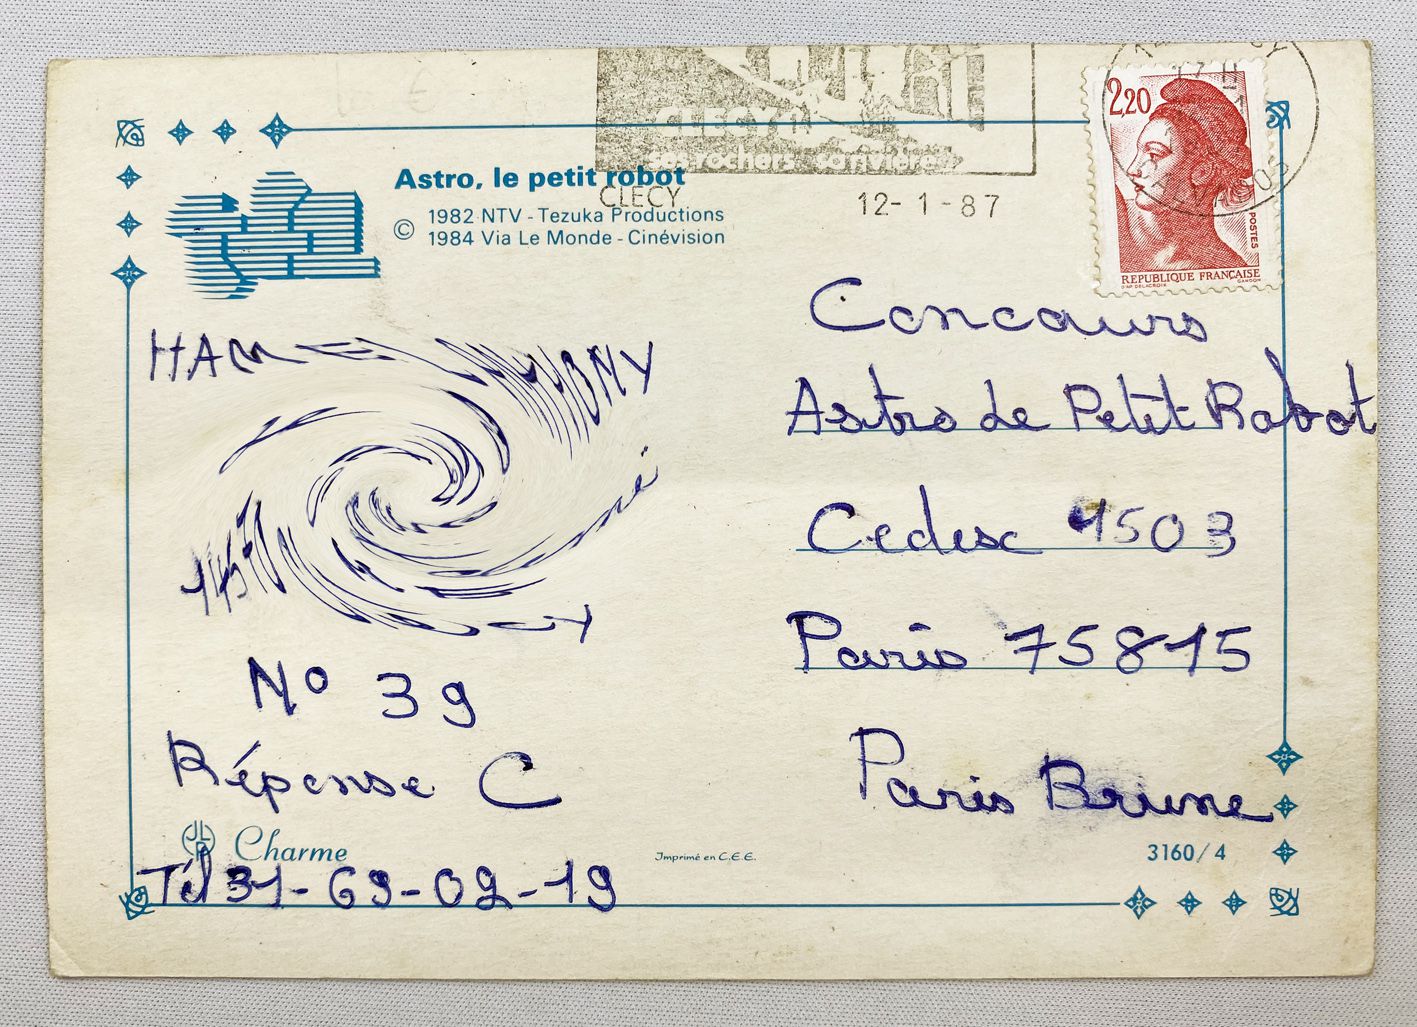 CLECY
ses rochers sa rivière
CLECY
12-1-87
2,20
POSTES
REPUBLIQUE FRANÇAISE
Astro, le petit robot
© 1982 NTV - Tezuka Productions
1984 Via Le Monde - Cinévision
tf1
N° 39
Réponse C
JL
Charme
Tél 31-69-02-19
Imprimé en C.E.E.
Concours
Astro Le Petit Robot
Cedesc 1503
Paris 75815
Paris Brune
3160/4